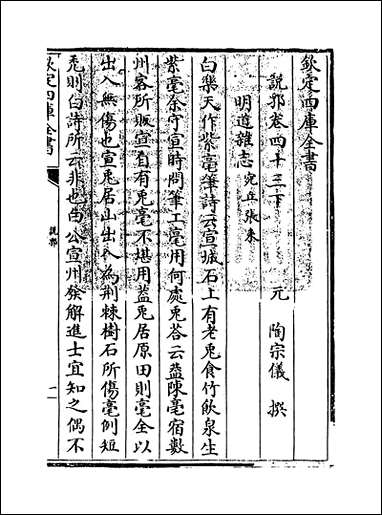 欽定四庫全書
說郛卷四十三下
元 陶宗儀 撰
明道雜志 宛丘張耒
白樂天作紫毫筆詩云宣城石上有老兎食竹飲泉生
紫毫余守宣時問筆工毫用何處兎荅云盡陳亳宿數
州客所販宣自有兎毫不堪用盖兎居原田則毫全以
出入無傷也宣兎居山出入為荆棘樹石所傷毫例短
禿則白詩所云非也白公宣州發解進士宜知之偶不
欽定四庫全書
說郛